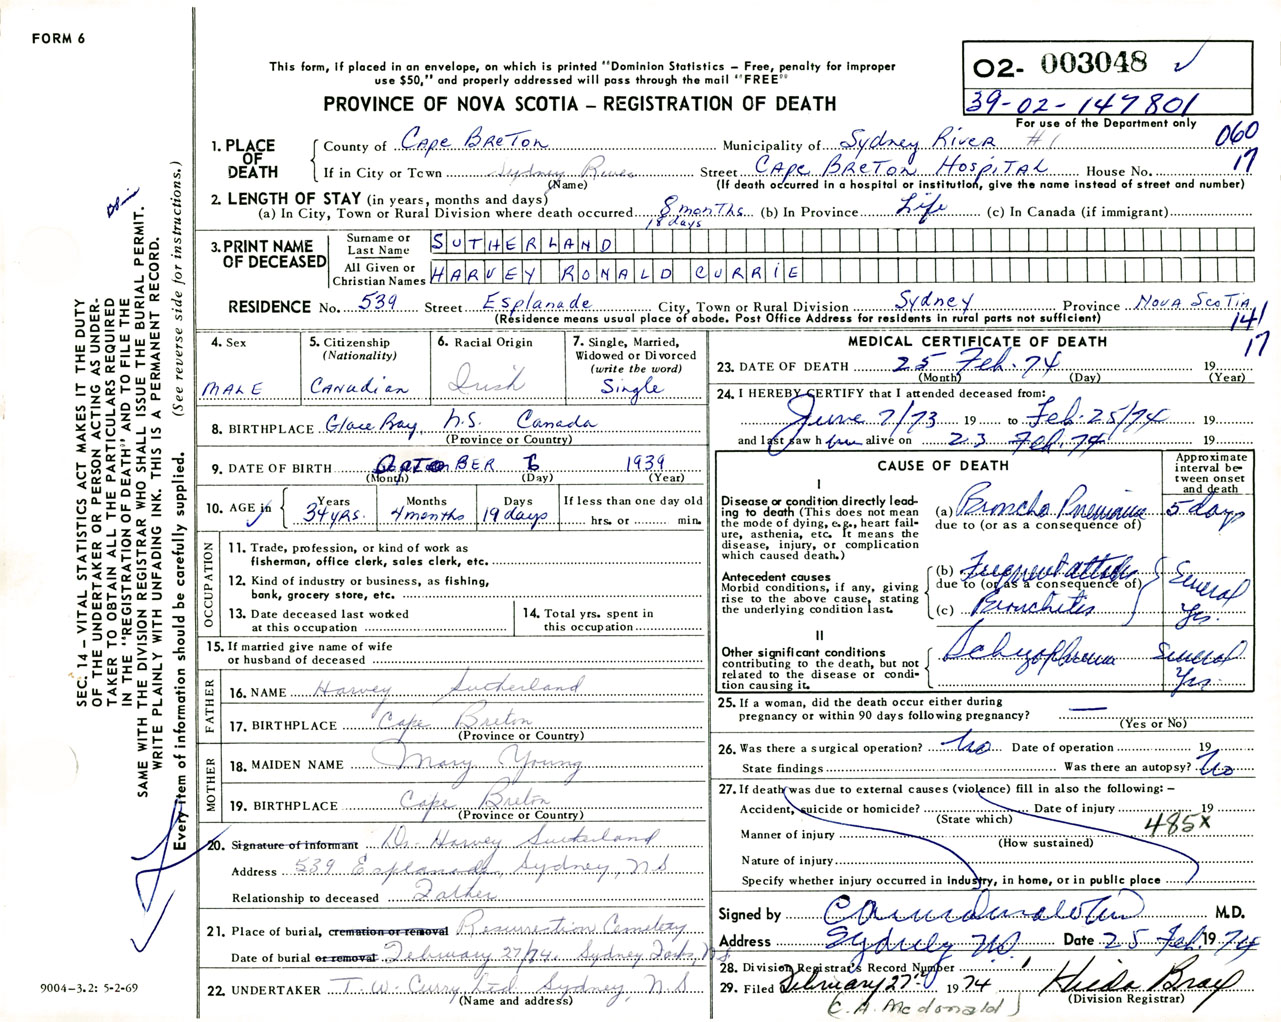 FORM 6
This form, If placed in an envelope, on which is printed "Dominion Statistics — Free, penalty for improper
use $50," and properly addressed will pass through the mail "FREE"
PROVINCE OF NOVA SCOTIA — REGISTRATION OF DEATH
O2- 003048 ✓
39-02-147801
For use of the Department only
060
17
1. PLACE OF DEATH
County of Cape Breton Municipality of Sydney River #1
If in City or Town Sydney River Street Cape Breton Hospital House No.
(Name) (If death occurred in a hospital or institution, give the name instead of street and number)
2. LENGTH OF STAY (in years, months and days)
(a) In City, Town or Rural Division where death occurred 8 months 18 days (b) In Province Life (c) In Canada (if immigrant)
3. PRINT NAME OF DECEASED
Surname or Last Name SUTHERLAND
All Given or Christian Names HARVEY RONALD CURRIE
RESIDENCE No. 539 Street Esplanade City, Town or Rural Division Sydney Province Nova Scotia
(Residence means usual place of abode. Post Office Address for residents in rural parts not sufficient)
141
17
4. Sex MALE
5. Citizenship (Nationality) Canadian
6. Racial Origin Irish
7. Single, Married, Widowed or Divorced (write the word) Single
8. BIRTHPLACE Glace Bay, N.S. Canada
(Province or Country)
9. DATE OF BIRTH OCTOBER 6 1939
(Month) (Day) (Year)
10. AGE in Years 34 yrs. Months 4 months Days 19 days If less than one day old hrs. or min.
OCCUPATION
11. Trade, profession, or kind of work as fisherman, office clerk, sales clerk, etc.
12. Kind of industry or business, as fishing, bank, grocery store, etc.
13. Date deceased last worked at this occupation
14. Total yrs. spent in this occupation
15. If married give name of wife or husband of deceased
FATHER
16. NAME Harvey Sutherland
17. BIRTHPLACE Cape Breton
(Province or Country)
MOTHER
18. MAIDEN NAME Mary Young
19. BIRTHPLACE Cape Breton
(Province or Country)
20. Signature of informant Dr. Harvey Sutherland
Address 539 Esplanade, Sydney, NS
Relationship to deceased Father
21. Place of burial, cremation or removal Resurrection Cemetery
Date of burial or removal February 27/74. Sydney Forks, NS
22. UNDERTAKER T. W. Curry Ltd Sydney, NS
(Name and address)
MEDICAL CERTIFICATE OF DEATH
23. DATE OF DEATH 25 Feb. 74 19
(Month) (Day) (Year)
24. I HEREBY CERTIFY that I attended deceased from:
June 7/73 19 to Feb. 25/74 19
and last saw him alive on 23 Feb. 74 19
CAUSE OF DEATH
Approximate interval between onset and death
I
Disease or condition directly leading to death (This does not mean the mode of dying, e.g., heart failure, asthenia, etc. It means the disease, injury, or complication which caused death.)
(a) Broncho Pneumonia 5 days
due to (or as a consequence of)
Antecedent causes
Morbid conditions, if any, giving rise to the above cause, stating the underlying condition last.
(b) Frequent attacks
due to (or as a consequence of)
(c) Bronchitis
Several Yrs.
II
Other significant conditions
contributing to the death, but not related to the disease or condition causing it.
Schizophrenia Several Yrs.
25. If a woman, did the death occur either during pregnancy or within 90 days following pregnancy? —
(Yes or No)
26. Was there a surgical operation? No Date of operation 19
State findings Was there an autopsy? No
27. If death was due to external causes (violence) fill in also the following: —
Accident, suicide or homicide? Date of injury 19
(State which)
485X
Manner of injury
(How sustained)
Nature of injury
Specify whether injury occurred in industry, in home, or in public place
Signed by M.D.
Address Sydney NS. Date 25 Feb. 1974
28. Division Registrar's Record Number 1
29. Filed February 27th 1974 Hilda Bray
(Division Registrar)
(C. A. McDonald)
SEC. 14 — VITAL STATISTICS ACT MAKES IT THE DUTY
OF THE UNDERTAKER OR PERSON ACTING AS UNDER-
TAKER TO OBTAIN ALL THE PARTICULARS REQUIRED
IN THE "REGISTRATION OF DEATH" AND TO FILE THE
SAME WITH THE DIVISION REGISTRAR WHO SHALL ISSUE THE BURIAL PERMIT.
WRITE PLAINLY WITH UNFADING INK. THIS IS A PERMANENT RECORD.
Every item of information should be carefully supplied. (See reverse side for instructions.)
9004-3.2: 5-2-69